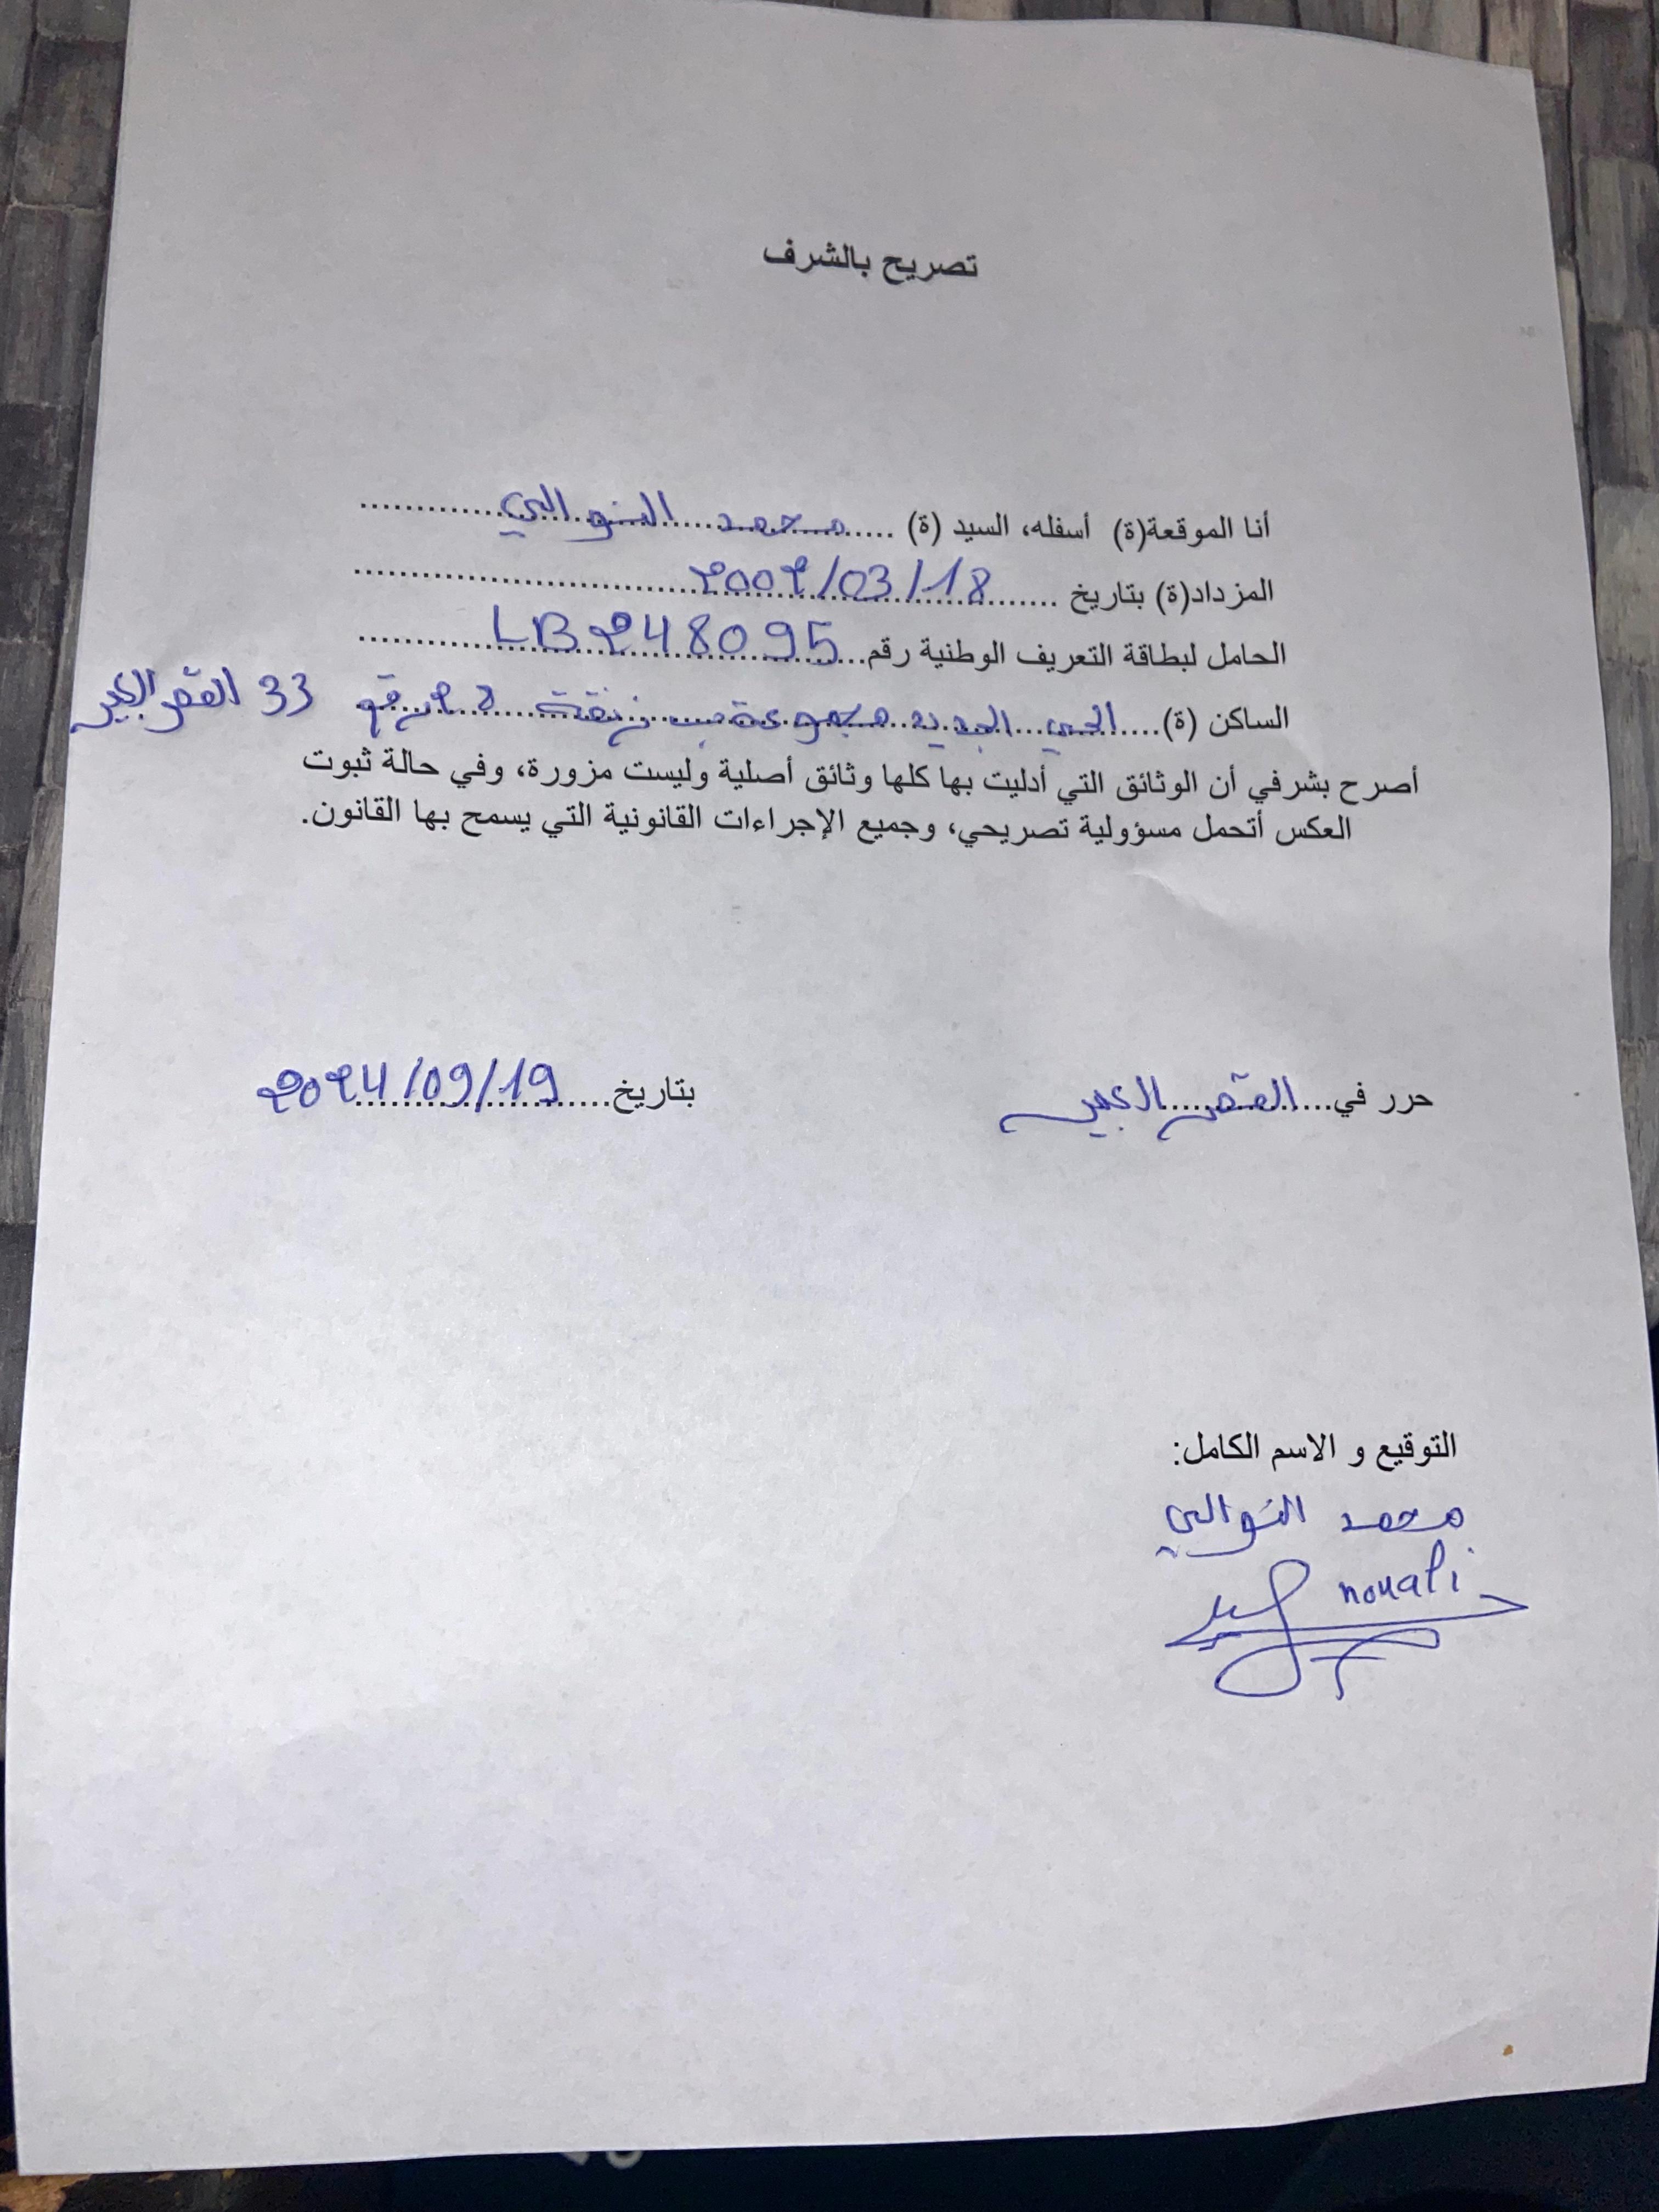 تصريح بالشرف
أنا الموقعة(ة) أسفله، السيد (ة) ..... محمد النوالي
المزداد(ة) بتاريخ ..... 2002/03/18
الحامل لبطاقة التعريف الوطنية رقم... LB248095
الساكن (ة)..... الحي الجديد مجموعة ب زنقة رقم 33 القصر الكبير
أصرح بشرفي أن الوثائق التي أدليت بها كلها وثائق أصلية وليست مزورة، وفي حالة ثبوت
العكس أتحمل مسؤولية تصريحي، وجميع الإجراءات القانونية التي يسمح بها القانون.
حرر في..... القصر الكبير بتاريخ..... 2024/09/19
التوقيع و الاسم الكامل:
محمد النوالي
nouali